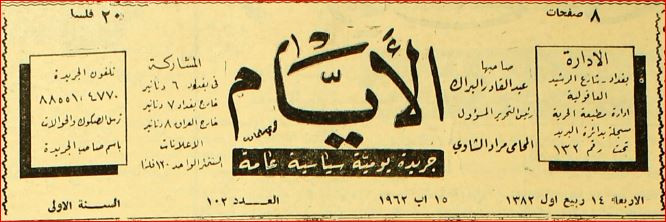 ٨ صفحات
٢٠ فلسا
الادارة
بغداد - شارع الرشيد
العاقولية
ادارة مطبعة الحرية
سجلت بدائرة البريد
تحت رقم ١٣٢
صاحبها
عبدالقادر البراك
رئيس التحرير المسؤول
المحامي مراد الشاوي
الأيام
جريدة يومية سياسية عامة
المشاركة
في بغداد ٦ دنانير
خارج بغداد ٧ دنانير
خارج العراق ٨ دنانير
الاعلانات
السنتمتر الواحد ١٢٠ فلسا
تلفون الجريدة
٨٨٥٥١،٤٧٧٠
ترسل الصكوك والحوالات
باسم صاحب الجريدة
الاربعاء ١٤ ربيع اول ١٣٨٢
١٥ اب ١٩٦٢
العدد ١٠٢
السنة الاولى